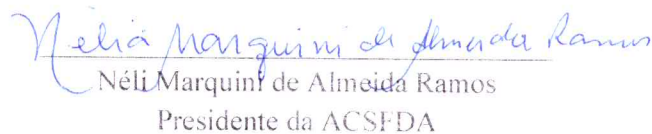 Nélia Marquini de Almeida Ramos
Néli Marquini de Almeida Ramos
Presidente da ACSFDA